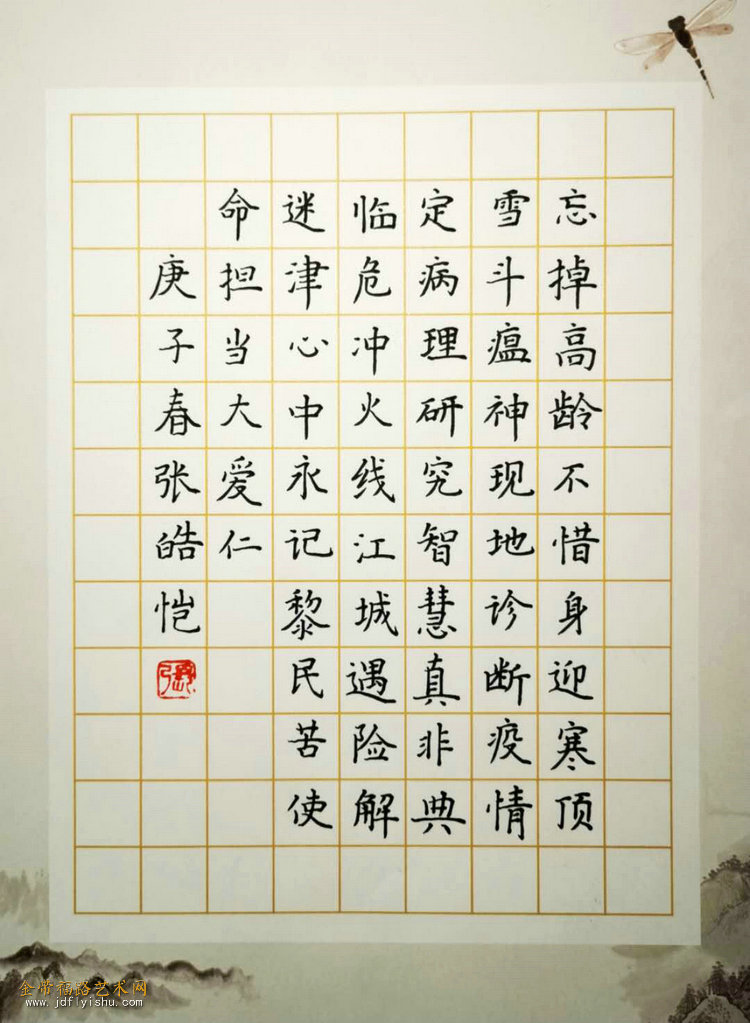 忘掉高龄不惜身迎寒顶
雪斗瘟神现地诊断疫情
定病理研究智慧真非典
临危冲火线江城遇险解
迷津心中永记黎民苦使
命担当大爱仁
庚子春张皓恺
張
金带福路艺术网
www.jdflyishu.com